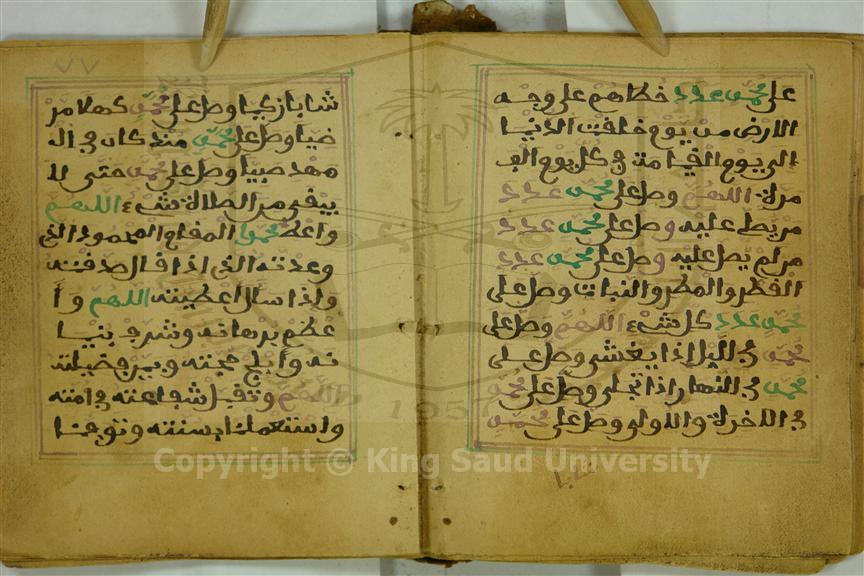 على محمد عدد خطاهم على وجه
الارض من يوم خلقت الدنيا
الى يوم القيامة في كل يوم الف
مرة اللهم وصل على محمد عدد
من يصل عليه وصل على محمد عدد
من لم يصل عليه وصل على محمد عدد
القطر والمطر والنبات وصل على
محمد عدد كل شيء اللهم وصل على
محمد في الليل اذا يغشى وصل على
محمد في النهار اذا تجلى وصل على محمد
في الاخرة والاولى وصل على محمد
شابا زكيا وصل على محمد كهلا مر
ضيا وصل على محمد منذ كان في ال
مهد صبيا وصل على محمد حتى لا
يبقى من الصلاة شيء اللهم
واعط محمدا المقام المحمود الذي
وعدته الذي اذا قال صدقته
واذا سال اعطيته اللهم وا
عظم برهانه وشرف بنيا
نه وابلج حجته وبين فضيلته
اللهم وتقبل شفاعته في امته
واستعملنا بسنته وتوفنا
Copyright © King Saud University
1957